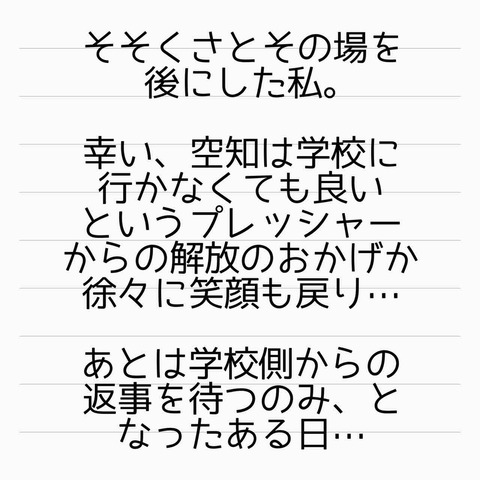 そそくさとその場を
後にした私。
幸い、空知は学校に
行かなくても良い
というプレッシャー
からの解放のおかげか
徐々に笑顔も戻り…
あとは学校側からの
返事を待つのみ、と
なったある日…